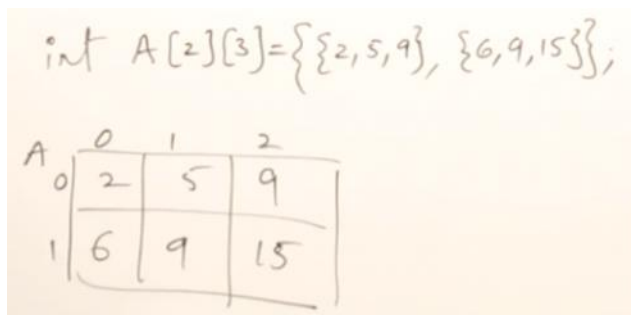 int A[2][3]={{2,5,9}, {6,9,15}};
A 0 1 2
0 2 5 9
1 6 9 15